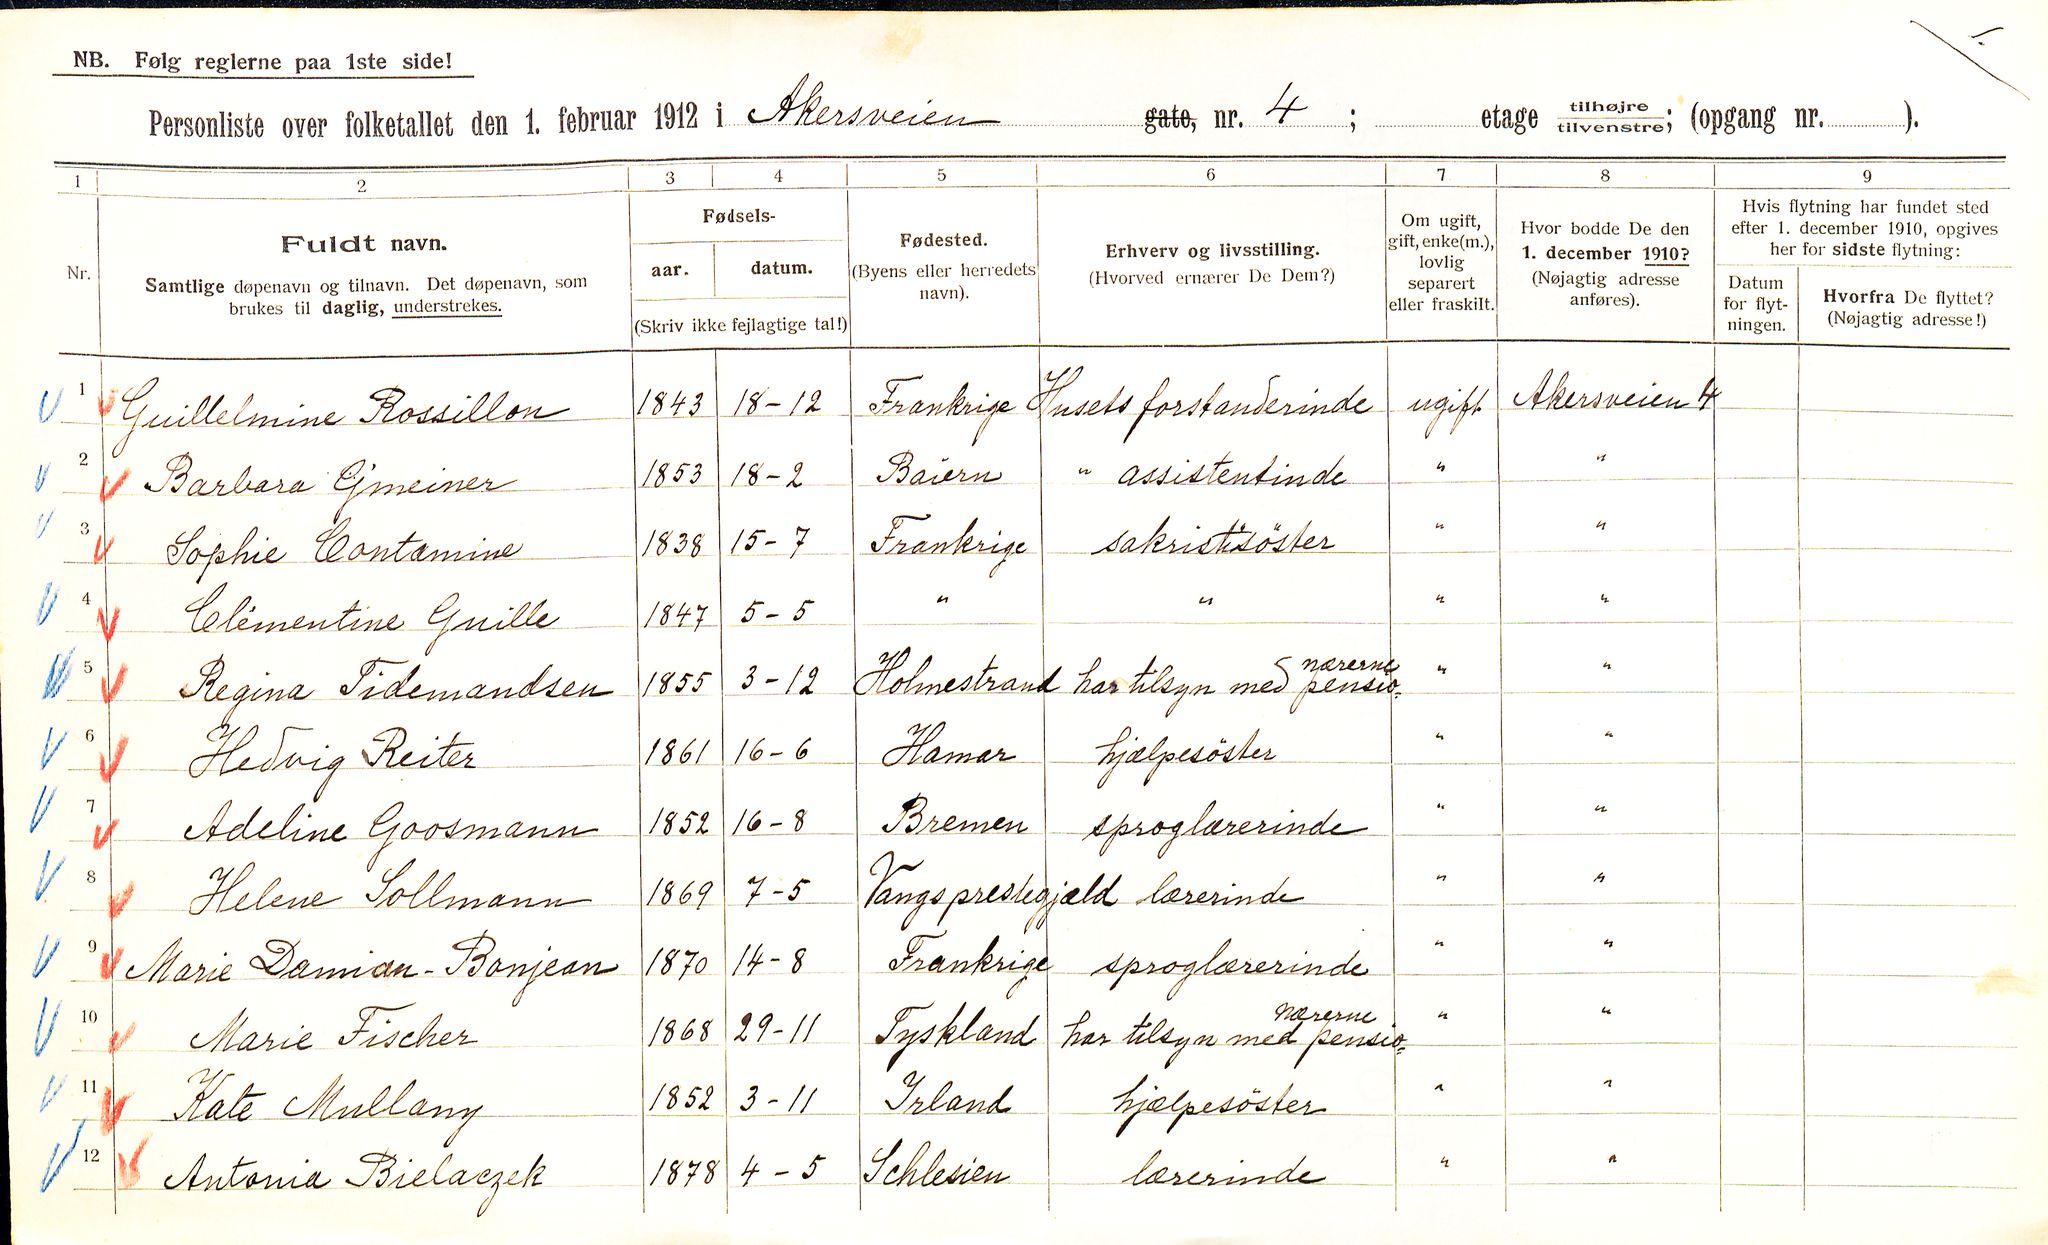 1.
NB. Følg reglerne paa 1ste side!
Personliste over folketallet den 1. februar 1912 i Akersveien gate, nr. 4 ; etage tilhøjre tilvenstre; (opgang nr. ).
1 2 3 4 5 6 7 8 9
Nr.
Fuldt navn.
Samtlige døpenavn og tilnavn. Det døpenavn, som
brukes til daglig, understrekes.
Fødsels-
aar. datum.
(Skriv ikke fejlagtige tal!)
Fødested.
(Byens eller herredets
navn).
Erhverv og livsstilling.
(Hvorved ernærer De Dem?)
Om ugift,
gift, enke(m.),
lovlig
separert
eller fraskilt.
Hvor bodde De den
1. december 1910?
(Nøjagtig adresse
anføres).
Hvis flytning har fundet sted
efter 1. december 1910, opgives
her for sidste flytning:
Datum
for flyt-
ningen.
Hvorfra De flyttet?
(Nøjagtig adresse!)
1 Guillelmine Rossillon 1843 18-12 Frankrige Husets forstanderinde ugift Akersveien 4
2 Barbara Gmeiner 1853 18-2 Baiern " assistentinde " "
3 Sophie Contamine 1838 15-7 Frankrige sakristisöster " "
4 Clémentine Guille 1847 5-5 " " " "
5 Regina Tidemandsen 1855 3-12 Holmestrand har tilsyn med pensio= nærerne " "
6 Hedvig Reiter 1861 16-6 Hamar hjælpesöster " "
7 Adeline Goosmann 1852 16-8 Bremen sproglærerinde " "
8 Helene Sollmann 1869 7-5 Vangs prestegjæld lærerinde " "
9 Marie Damian-Bonjean 1870 14-8 Frankrige sproglærerinde " "
10 Marie Fischer 1868 29-11 Tyskland har tilsyn med pensio= nærerne " "
11 Kate Mullany 1852 3-11 Irland hjælpesöster " "
12 Antonia Bielaczek 1878 4-5 Schlesien lærerinde " "